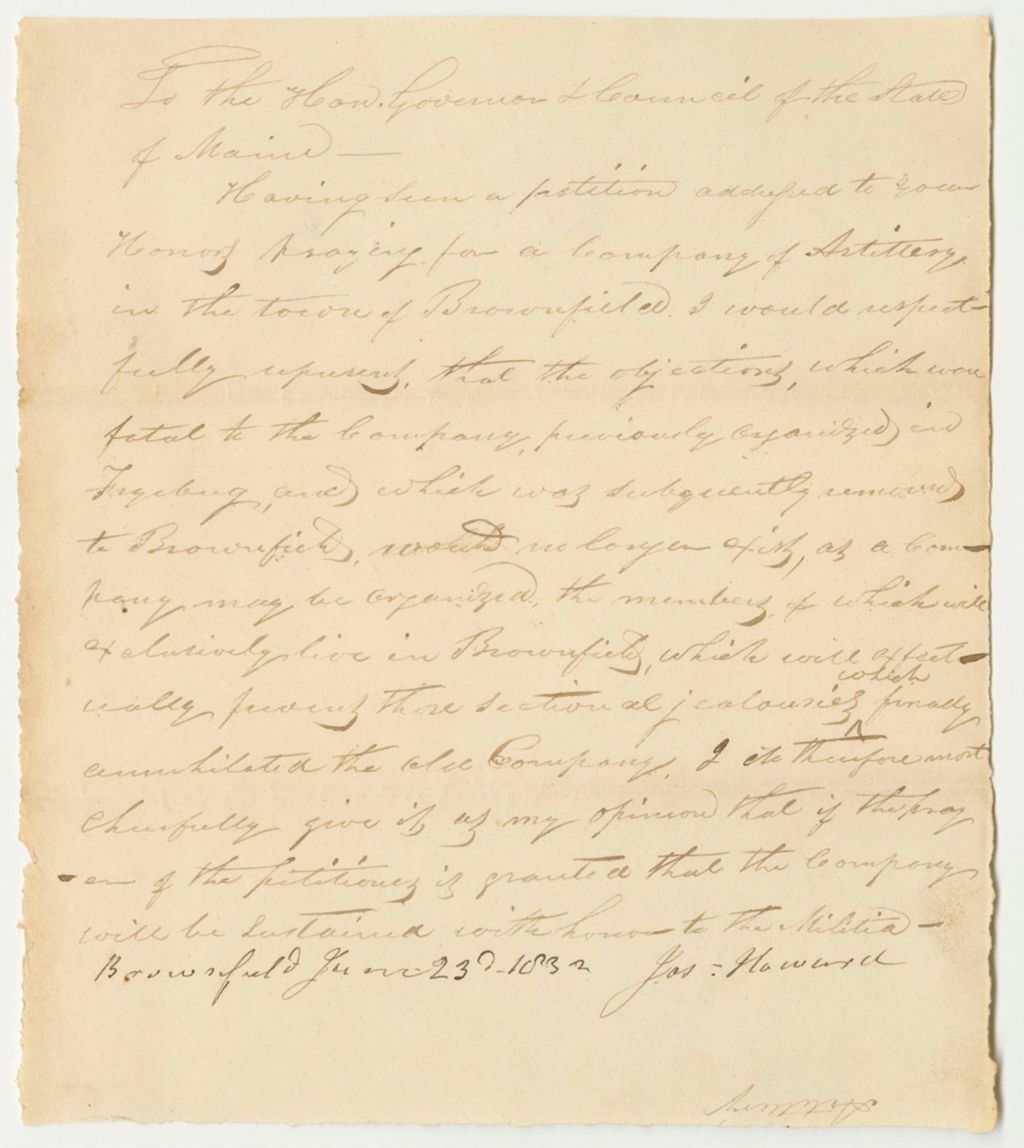 To the Hon. Governor & Council of the State
of Maine —
Having seen a petition addressed to your
Honors praying for a Company of Artillery
in the town of Brownfield. I would respect-
fully represent, that the objections, which were
fatal to the Company, previously organized in
Fryeburg, and which was subsequently removed
to Brownfield, would no longer exist, as a Com-
pany may be organized, the members of which will
exclusively live in Brownfield, which will effect-
which
ually prevent those sectional jealousies ^ finally
annihilated the old Company. I do therefore most
cheerfully give it as my opinion that if the pray
-er of the petitioners is granted that the Company
will be sustained with honor to the Militia —
Brownfield June 23d. 1832 Jos: Howard
Artillery